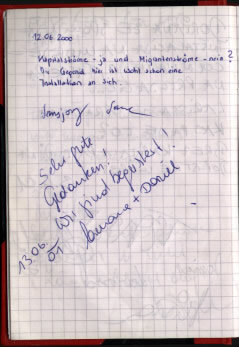 12.06 2000
Kapitalströme - ja und Migrantenströme - nein?
Die Gegend hier ist wohl schon eine
Installation an sich.
Sehr gute
Gedanken!
Wir sind begeistert!
+ Daniel
13.06.
01